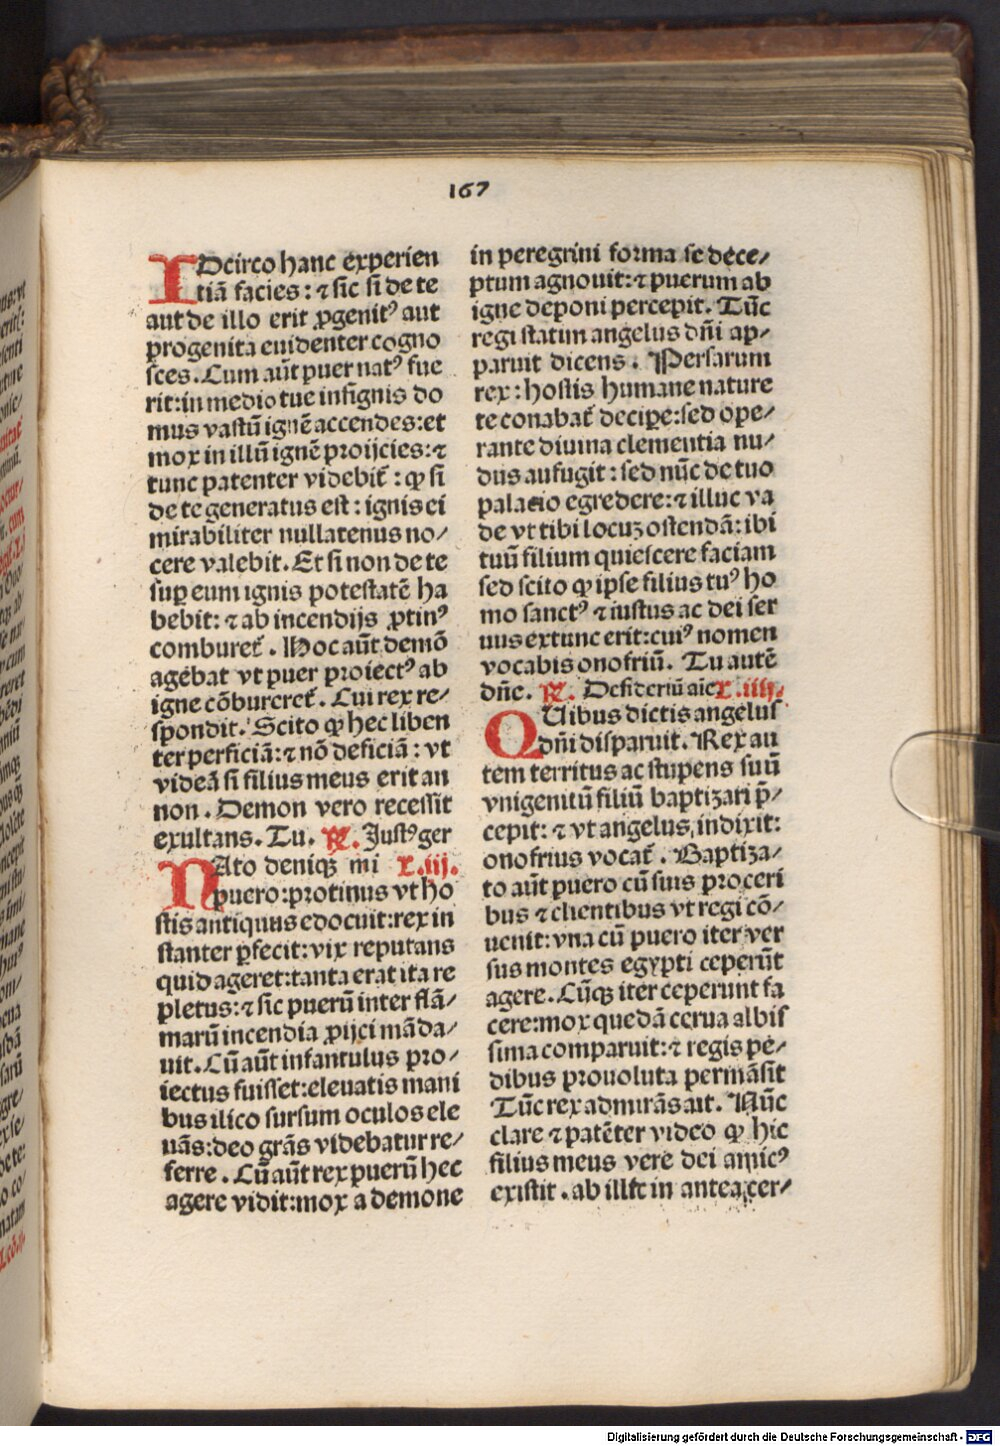 167
IDcirco hanc experien
tiā facies: ⁊ sic si de te
aut de illo erit ꝓgenitꝰ aut
progenita euidenter cogno
sces. Cum aūt puer natꝰ fue
rit: in medio tue insignis do
mus vastū ignē accendes: et
mox in illū ignē proijcies: ⁊
tunc patenter videbit̄: ꝙ si
de te generatus est: ignis ei
mirabiliter nullatenus no⸗
cere valebit. Et si non de te
suꝑ eum ignis potestatē ha
bebit: ⁊ ab incendijs ꝓtinꝰ
comburet̄. Hoc aūt demō
agebat vt puer proiectꝰ ab
igne cōbureret̄. Cui rex re⸗
spondit. Scito ꝙ hec liben
ter perficiā: ⁊ nō deficiā: vt
videā si filius meus erit an
non. Demon vero recessit
exultans. Tu. ℟. Justꝰ ger
NAto deniqꝫ mi x.iij.
puero: protinus vt ho
stis antiquus edocuit: rex in
stanter ꝑfecit: vix reputans
quid ageret: tanta erat ita re
pletus: ⁊ sic puerū inter flā⸗
marū incendia ꝓijci māda⸗
uit. Cū aūt infantulus pro⸗
iectus fuisset: eleuatis mani
bus ilico sursum oculos ele
uās: deo grās videbatur re⸗
ferre. Cū aūt rex puerū hec
agere vidit: mox a demone
in peregrini forma se dece⸗
ptum agnouit: ⁊ puerum ab
igne deponi percepit. Tūc
regi statim angelus dn̄i ap⸗
paruit dicens. Persarum
rex: hostis humane nature
te conabat̄ deciꝑe: sed ope⸗
rante diuina clementia nu⸗
dus aufugit: sed nūc de tuo
palacio egredere: ⁊ illuc va
de vt tibi locuꝫ ostendā: ibi
tuū filium quiescere faciam
sed scito ꝙ ipse filius tuꝰ ho
mo sanctꝰ ⁊ iustus ac dei ser
uus extunc erit: cuiꝰ nomen
vocabis onofriū. Tu autē
dn̄e. ℟. Desideriū aīe x.iiij.
QUibus dictis angelus
dn̄i disparuit. Rex au
tem territus ac stupens suū
vnigenitū filiū baptizari p̄⸗
cepit: ⁊ vt angelus indixit:
onofrius vocat̄. Baptiza⸗
to aūt puero cū suis proceri
bus ⁊ clientibus vt regi cō⸗
uenit: vna cū puero iter ver
sus montes egypti ceperūt
agere. Cūqꝫ iter ceperunt fa
cere: mox quedā cerua albis
sima comparuit: ⁊ regis pe⸗
dibus prouoluta permāsit
Tūc rex admirās ait. Nūc
clare ⁊ patēter video ꝙ hic
filius meus vere dei amicꝰ
existit. ab illi in antea cer⸗
Digitalisierung gefördert durch die Deutsche Forschungsgemeinschaft - DFG